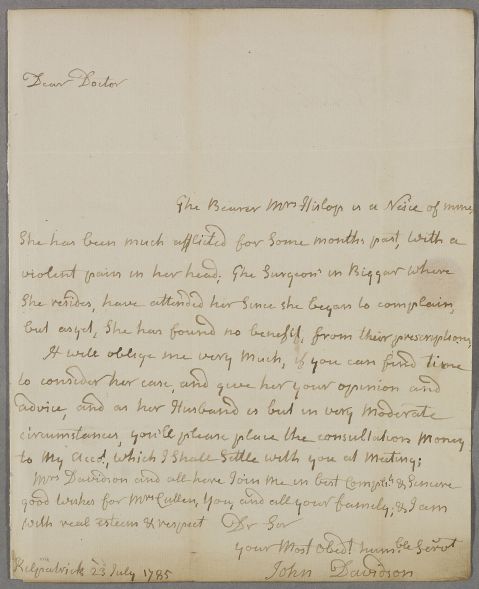 Dear Doctor
The Bearer Mrs Hislop is a Neice of mine,
She has been much afflicted for Some months past, with a
violent pain in her head; The Surgeons in Biggar where
She resides, have attended her Since she began to complain,
but as yet, She has found no benefit, from their prescriptions,
It will oblige me very Much, if you can find time
to consider her case, and give her your opinion and
advice, and as her Husband is but in very Moderate
circumstances, you'll please place the consultation Money
to My Acct., which I Shall Settle with you at Meeting;
Mrs Davidson and all here Join me in best Complts. & Sincere
good wishes for Mrs Cullen, You, and all your family, & I am
with real esteem & respect Dr Sir
your Most Obedt. humble Servt
Kilpatrick 23 July 1785
John Davidson